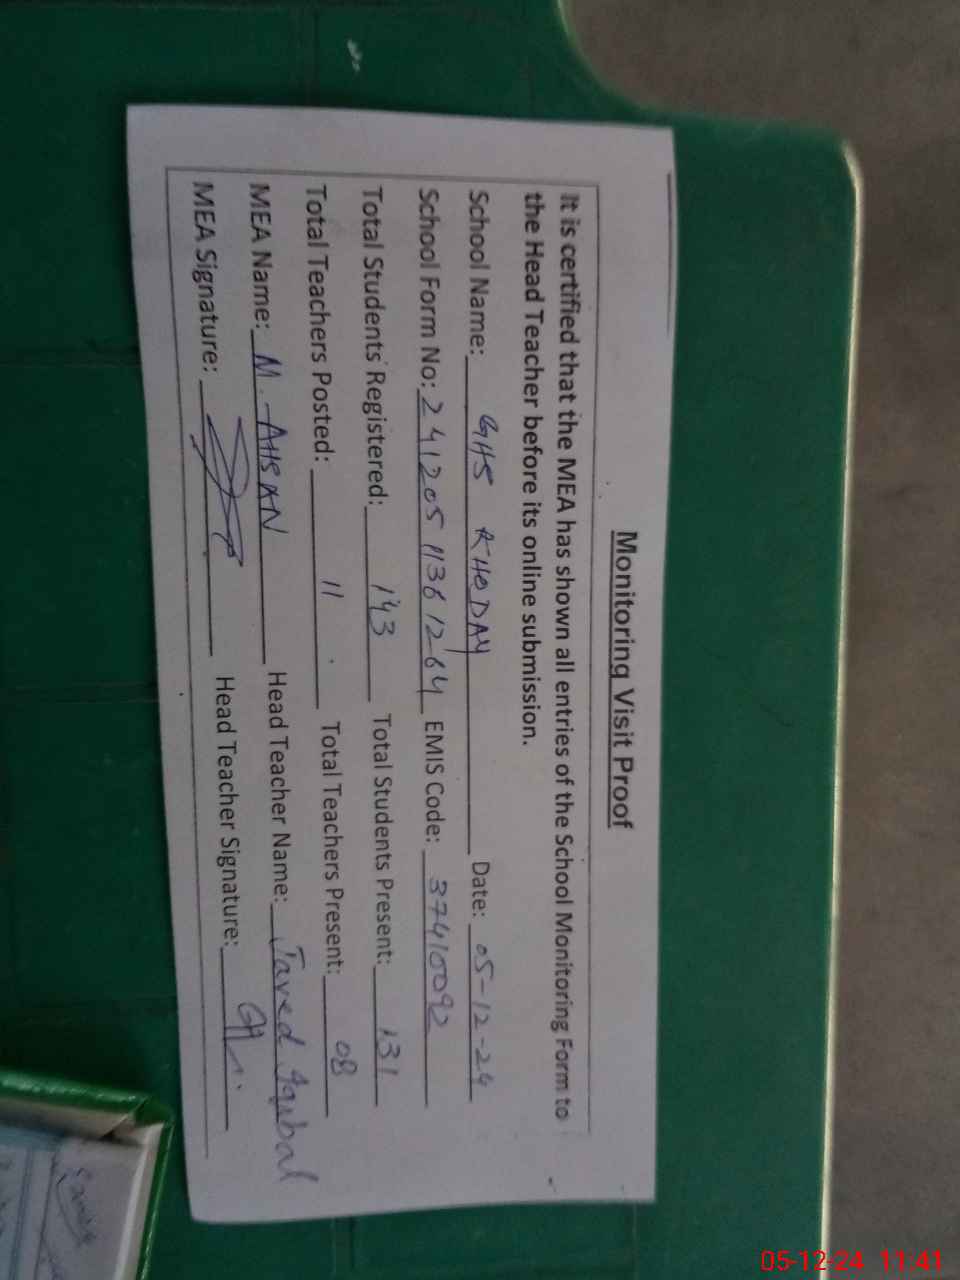 Monitoring Visit Proof
It is certified that the MEA has shown all entries of the School Monitoring Form to
the Head Teacher before its online submission.
School Name: GHS KHODAY Date: 05-12-24
School Form No: 24120511361264 EMIS Code: 37410092
Total Students Registered: 143 Total Students Present: 131
Total Teachers Posted: 11 Total Teachers Present: 08
MEA Name: M. AHSAN Head Teacher Name: Javed Iqubal
MEA Signature: Head Teacher Signature:
05-12-24 11:41